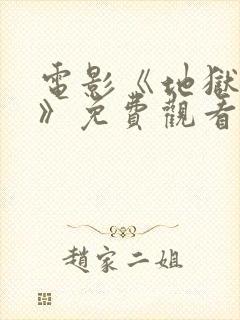 電影《地獄
》免費觀看
趙家二姐